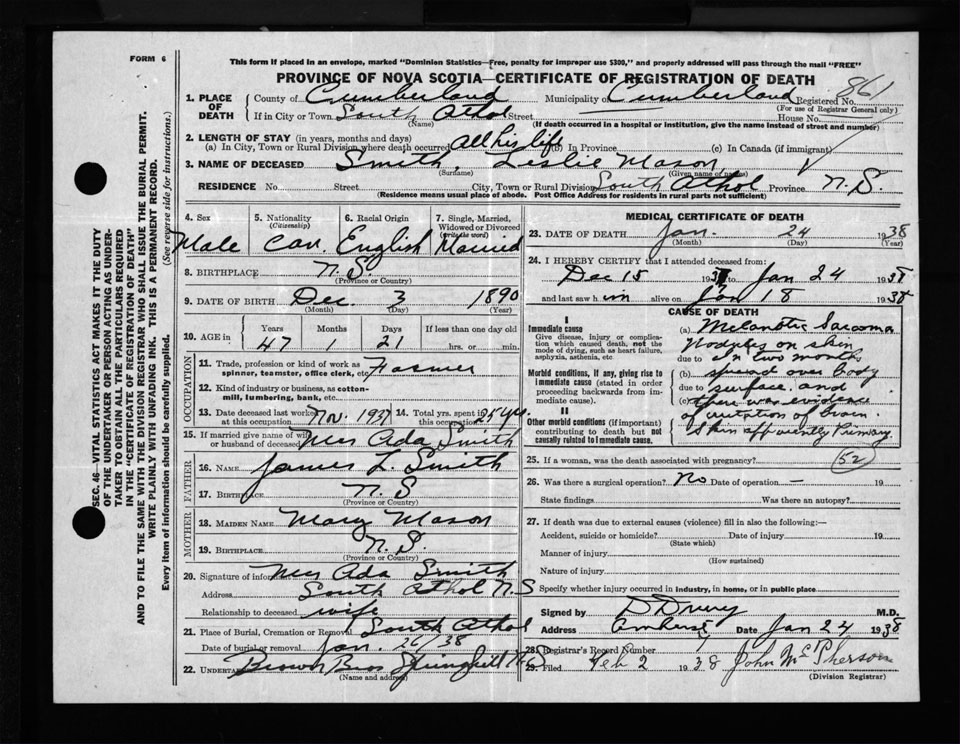 FORM 6
This form if placed in an envelope, marked "Dominion Statistics—Free, penalty for improper use $300," and properly addressed will pass through the mail "FREE"
PROVINCE OF NOVA SCOTIA—CERTIFICATE OF REGISTRATION OF DEATH
861
1. PLACE OF DEATH
County of Cumberland Municipality of Cumberland Registered No.
(For use of Registrar General only)
If in City or Town South Athol Street House No.
(Name) (If death occurred in a hospital or institution, give the name instead of street and number)
2. LENGTH OF STAY (in years, months and days)
(a) In City, Town or Rural Division where death occurred All his life (b) In Province (c) In Canada (if immigrant)
3. NAME OF DECEASED Smith, Leslie Mason
(Surname) (Given name or names)
RESIDENCE No. Street City, Town or Rural Division South Athol Province N.S.
(Residence means usual place of abode. Post Office Address for residents in rural parts not sufficient)
4. Sex 5. Nationality (Citizenship) 6. Racial Origin 7. Single, Married, Widowed or Divorced (write the word)
Male Can. English Married
8. BIRTHPLACE N.S.
(Province or Country)
9. DATE OF BIRTH Dec. 3 1890
(Month) (Day) (Year)
10. AGE in Years Months Days If less than one day old
47 1 21 hrs. or min.
OCCUPATION
11. Trade, profession or kind of work as spinner, teamster, office clerk, etc. Farmer
12. Kind of industry or business, as cotton-mill, lumbering, bank, etc.
13. Date deceased last worked at this occupation Nov. 1937 14. Total yrs. spent in this occupation 25 yrs.
15. If married give name of wife or husband of deceased Mrs Ada Smith
FATHER
16. NAME James L. Smith
17. BIRTHPLACE N.S
(Province or Country)
MOTHER
18. MAIDEN NAME Mary Mason
19. BIRTHPLACE N.S.
(Province or Country)
20. Signature of informant Mrs Ada Smith
Address South Athol N.S
Relationship to deceased wife
21. Place of Burial, Cremation or Removal South Athol
Date of burial or removal Jan. 26/38
22. UNDERTAKER Brown Bros Springhill N.S.
(Name and address)
MEDICAL CERTIFICATE OF DEATH
23. DATE OF DEATH Jan. 24 1938
(Month) (Day) (Year)
24. I HEREBY CERTIFY that I attended deceased from:
Dec 15 1937 to Jan 24 1938
and last saw him alive on Jan 18 1938
CAUSE OF DEATH
I
Immediate cause
Give disease, injury or complication which caused death, not the mode of dying, such as heart failure, asphyxia, asthenia, etc
Morbid conditions, if any, giving rise to immediate cause (stated in order proceeding backwards from immediate cause).
II
Other morbid conditions (if important) contributing to death but not causally related to immediate cause.
(a) Melanotic Sarcoma
Nodules on skin
due to In two months
(b) spread over body
due to surface, and
(c) there was evidence
of irritation of brain.
Skin apparently Primary.
52
25. If a woman, was the death associated with pregnancy?
26. Was there a surgical operation? No Date of operation — 19
State findings Was there an autopsy?
27. If death was due to external causes (violence) fill in also the following:—
Accident, suicide or homicide? Date of injury 19
(State which)
Manner of injury
(How sustained)
Nature of injury
Specify whether injury occurred in industry, in home, or in public place
Signed by D Drury M.D.
Address Amherst Date Jan 24 1938
28. Registrar's Record Number
29. Filed Feb 2 1938 John McPherson
(Division Registrar)
SEC. 46—VITAL STATISTICS ACT MAKES IT THE DUTY
OF THE UNDERTAKER OR PERSON ACTING AS UNDER-
TAKER TO OBTAIN ALL THE PARTICULARS REQUIRED
IN THE "CERTIFICATE OF REGISTRATION OF DEATH"
AND TO FILE THE SAME WITH THE DIVISION REGISTRAR WHO SHALL ISSUE THE BURIAL PERMIT.
WRITE PLAINLY WITH UNFADING INK. THIS IS A PERMANENT RECORD.
Every item of information should be carefully supplied. (See reverse side for instructions.)